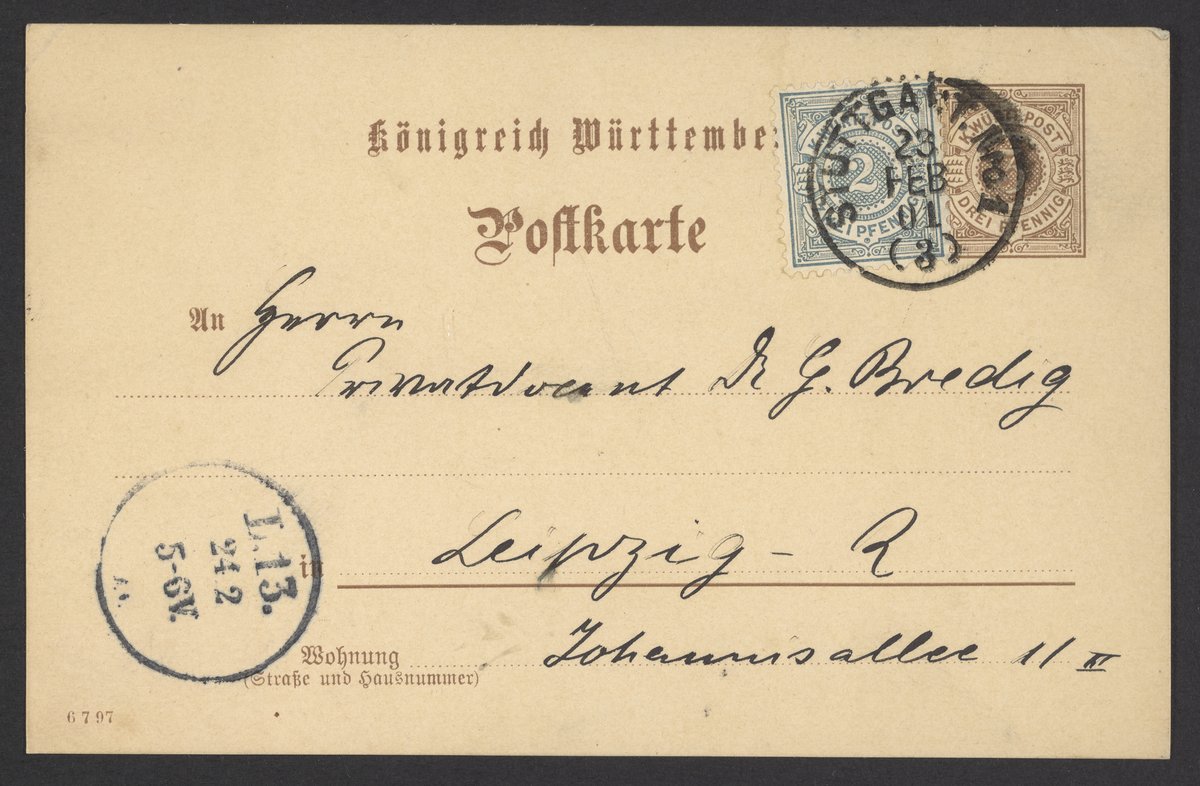 Königreich Württembe
Postkarte
K.WÜRTT.POST
2
EI PFENNIG
K.WÜRTT.POST
3
DREI PFENNIG
STUTTGART. Nro 1
23
FEB
01
(3)
An Herrn
Privatdocent Dr G. Bredig
in Leipzig - R
Wohnung Johannisallee 11 III
(Straße und Hausnummer)
L.13.
24 2
5-6V.
6 7 97